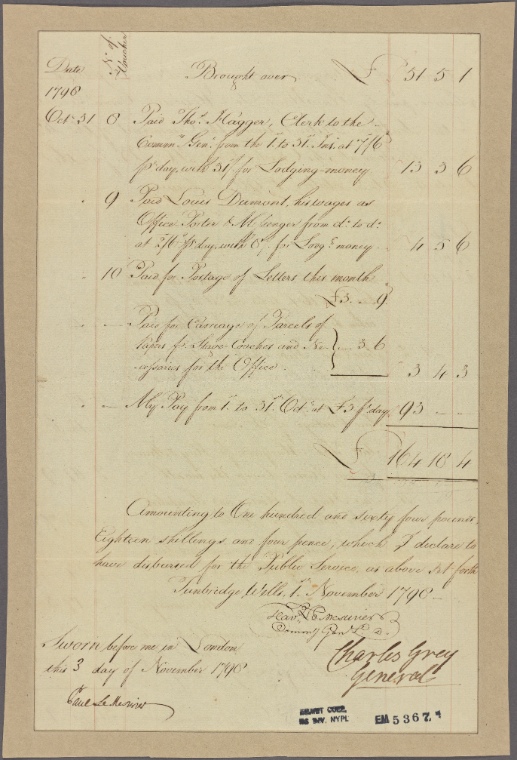 Date
No. of Voucher
Brought over £ 51 5 1
1798
Octr. 31 8 Paid Thos. Flagger, Clerk to the
Commy. Genl. from the 1. to 31. Inst. at 7/6
pr. day, with 31/ for Lodging-money 13 3 6
9 Paid Louis Dumont, his wages as
Office Porter & Messenger from do. to do.
at pr. day, with for Lodgg. money 4 5 6
10 Paid for Postage of Letters this month
£3. " 9
Paid for Carriage of Parcels of
pr. Stage Coaches and Ne- 3. 6
cessaries for the Office 3 4 3
My Pay from 1. to 31. Octr. at £3 pr. day 93 - -
£ 164 18 4
Ammounting to One hundred and sixty four pounds,
Eighteen shillings and four pence, which I declare to
have disbursed for the Public Service, as above set forth
Tunbridge Wells, 1. November 1798
Havd. Le Mesurier
Charles Grey
General
Sworn before me in London
this 3 day of November 1798
Paul Le Mesurier
EMMET COLL.
MS DIV. NYPL
EM 5367.